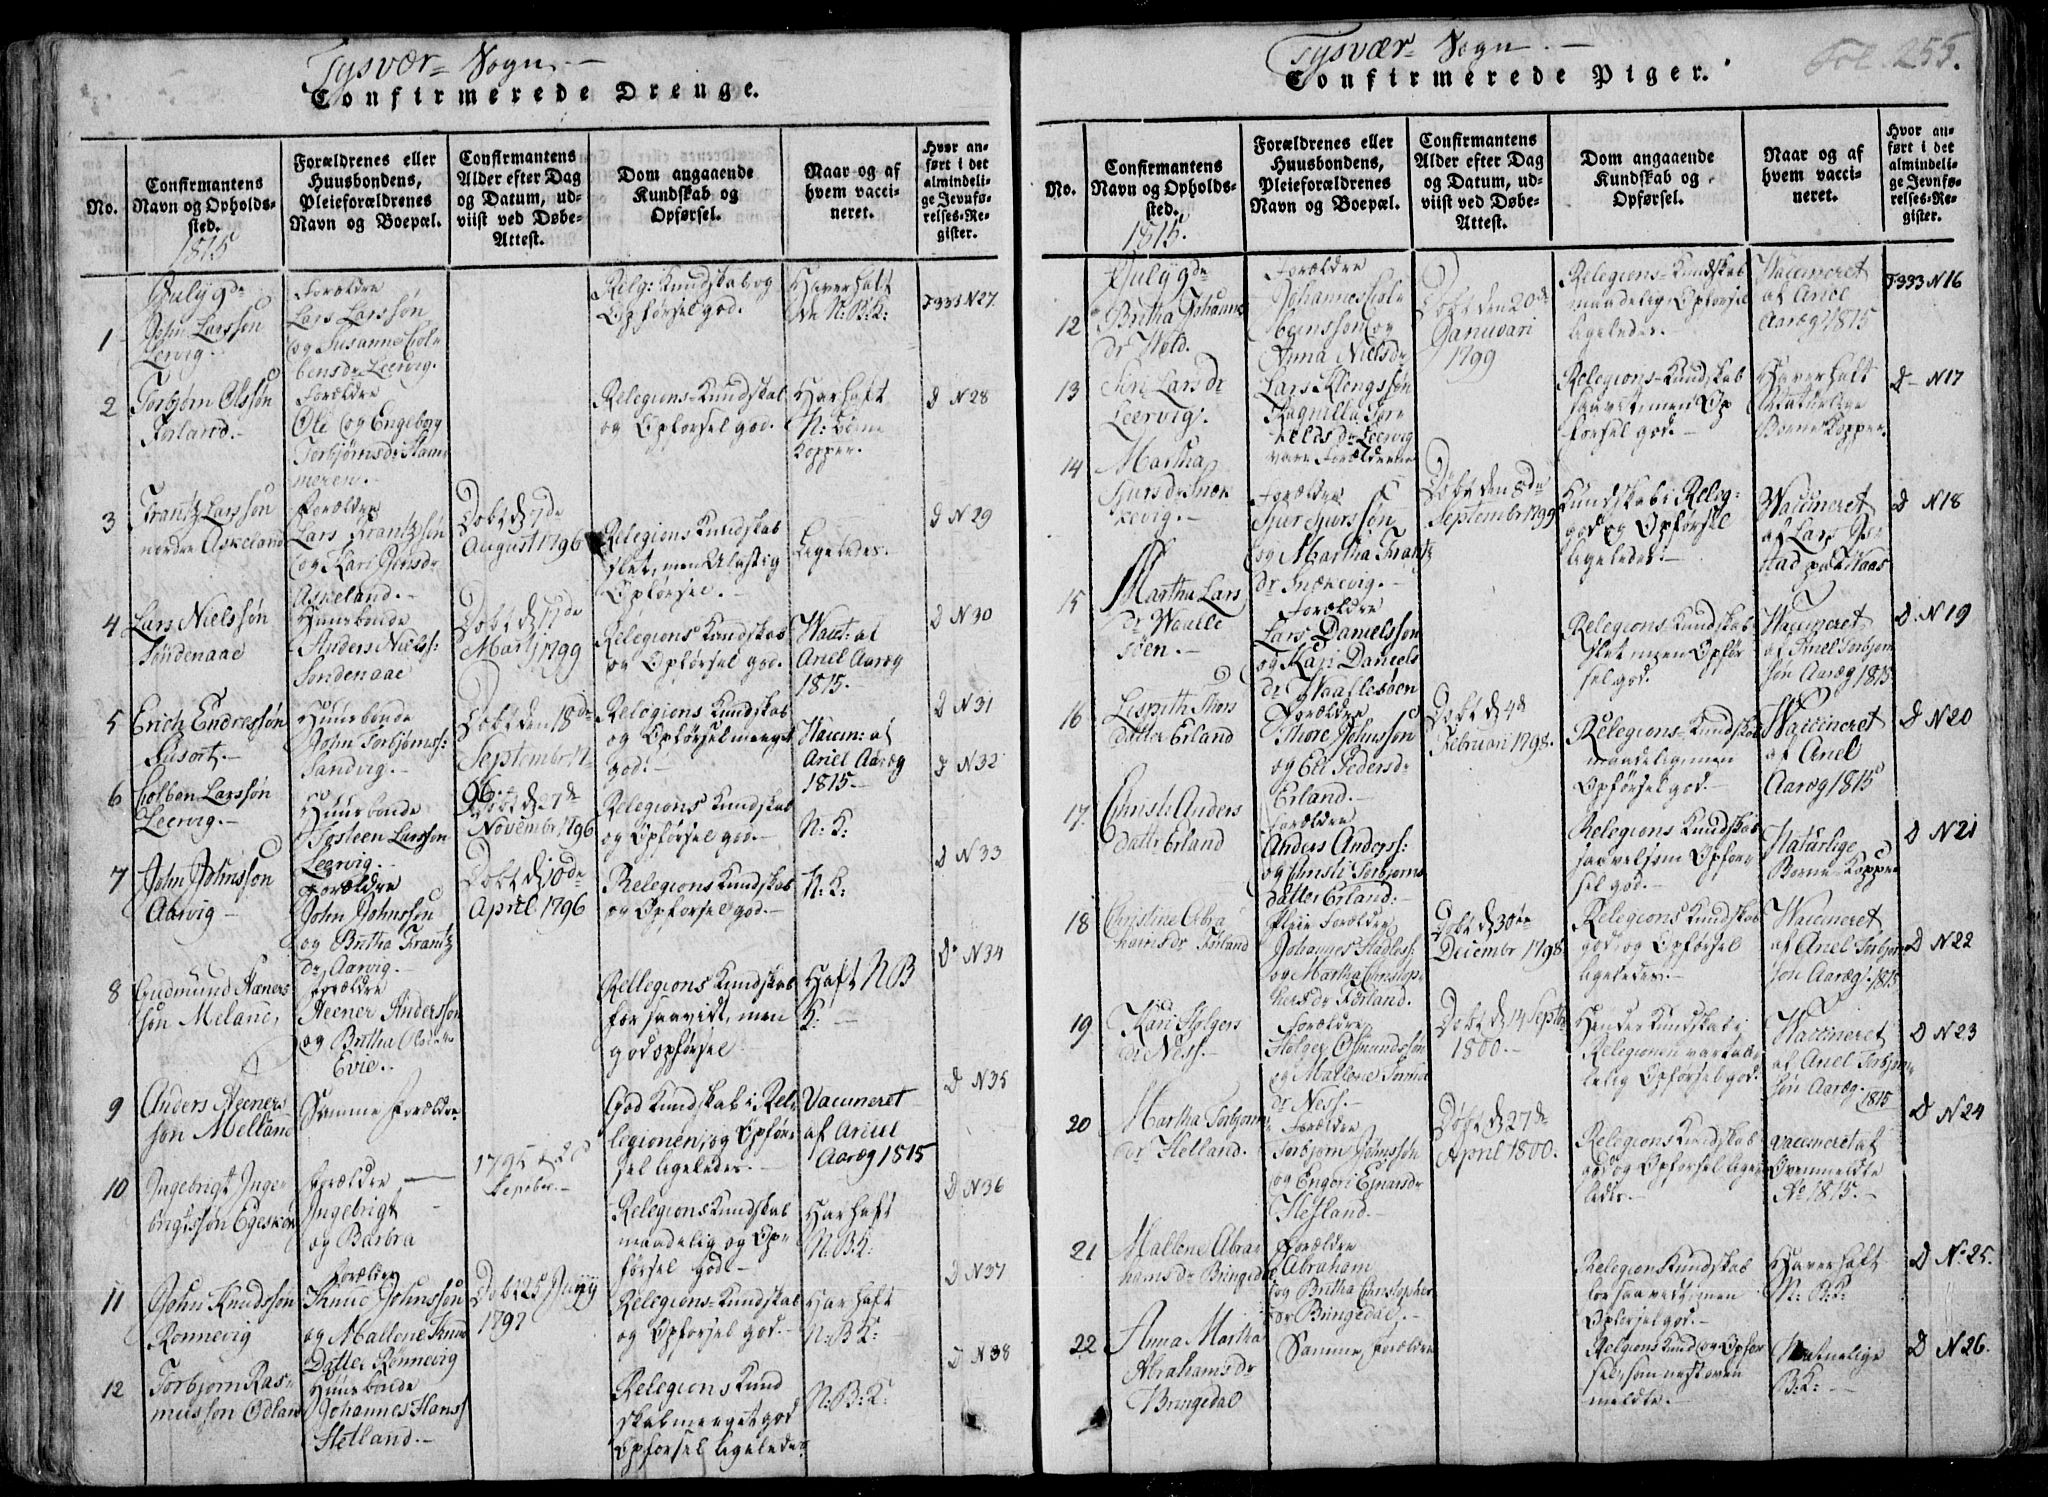 Tysvær Sogn.
Confirmerede Drenge.
No.
Confirmantens
Navn og Opholds-
sted.
1815
Forældrenes eller
Huusbondens,
Pleieforældrenes
Navn og Boepæl.
Confirmantens
Alder efter Dag
og Datum, ud-
viist ved Døbe-
Attest.
Dom angaaende
Kundskab og
Opførsel.
Naar og af
hvem vacci-
neret.
Hvor an-
ført i det
almindeli-
ge Jevnfø-
relses-Re-
gister.
1
July 9de
John Larssøn
Leervig.
Forældre
Lars Larssøn
og Susanne Col-
bensdr Leervig.
Relg: Kundskab og
Opførsel god.
Haver haft
N: B: K:
F 333 N 27
2
Torbjørn Olssøn
Førland.
Forældre
Ole og Engeborg
Torbjørnsdr
Relegions-Kundskab
og Opførsel god.
Har haft
N: Børne
Kopper.
D N 28
3
Frantz Larssøn
nordre Askeland
Forældre
Lars Frantzsøn
og Kari Jensdr
Askeland.
Døbt d 7de
August 1796
Relegions Kundskab
slet, men
Opførsel.
Ligeledes.
D N 29
4
Lars Nielssøn
Søndenaae
Huusbonde
Anders Nielss:
Søndenaae
Døbt d 17de
Martj 1799
Relegions Kundskab
og Opførsel god.
Vacc: af
Ariel Aaræg
1815.
D N 30
5
Erich Endressøn
Huusbonde
John Torbjørnss:
Sandvig.
Døbt den 18de
Septembr 17
96.
Relegions Kundskab
og Opførsel meeget
god.
Vaccin: af
Ariel Aaræg
1815.
D N 31
6
Colben Larssøn
Leervig.
Huusbonde
Tosteen Larssøn
Leervig.
Døbt d 27de
Novembr 1796
Relegions Kundskab
og Opførsel god.
N: K:
D N 32
7
John Johnssøn
Aarvig
Forældre
John Johnssøn
og Britha Frantz
Dr Aarvig.
Døbt d 10de
April 1796
Relegions Kundskab
og Opførsel god.
N: K:
D N 33
8
Gudmund Heeners
søn Meland,
Forældre
Heener Anderssøn
og Britha
Evie.
Rellegions Kundskab
for saavidt, men
god opførsel
Haft N B
K:
D N 34
9
Anders Heeners-
søn Melland
Samme Forældre
God Kundskab i Rel-
legionen, og Opfør-
sel ligeledes.
Vaccineret
af Ariel
Aaræg 1815
D N 35
10
Ingebrigt Inge-
brigtssøn
Forældre
Ingebrigt
og Barbra
1795
Relegions Kundskab
maadelig og Op-
førsel god.
Har haft
N: B: K:
D N 36
11
John Knudssøn
Rønnevig
Forældre
Knud Johnssøn
og Mallene Knud
Datter Rønnevig
Døbt 25 Junij
1797
Relegions-Kundskab
og Opførsel god.
Har haft
N: B K:
D N 37
12
Torbjørn Ras-
mussøn Ødland
Huusbonde
Johannes Hanss
Hetland.
Relegions Kund
skab meeget god
Opførsel ligeledes
N: B: K:
D N 38
Tysvær Sogn.
Confirmerede Piger.
Fol. 255.
No.
Confirmantens
Navn og Opholds-
sted.
1815.
Forældrenes eller
Huusbondens,
Pleieforældrenes
Navn og Boepæl.
Confirmantens
Alder efter Dag
og Datum, ud-
viist ved Døbe-
Attest.
Dom angaaende
Kundskab og
Opførsel.
Naar og af
hvem vacci-
neret.
Hvor an-
ført i det
almindeli-
ge Jevnfø-
relses-Re-
gister.
12
July 9de
Britha Johannes
dr
Forældre
Johannes Col-
benssøn og
Anna Nielsdr
Døbt den 20de
Januari
1799
Relegions-Kundskab
maadelig, Opførsel
ligeledes.
Vaccineret
af Ariel
Aaræg 1815
F 333 N 16
13
Siri Larsdr
Leervig.
Lars Klengssøn
Ragnilla Tor-
kelds Dr Leervig
vare Forældrene
Relegions-Kundskab
saavelsom Op-
førsel god.
Haver haft
Naturlige
Børne Kopper.
D N 17
14
Martha
Sjurs dr
kevig.
Forældre
Sjur Sjurssøn
og Martha Frantz
dr
Døbt den 8de
Septembr 1799
Kundskab i Relig:
god og Opførsel
ligeledes.
Vaccineret
af Lars
D N 18
15
Martha Lars
dr Waalle
søen.
Forældre
Lars Danielssøn
og Kari Daniels
dr Waallesøen
Relegions-Kundskab
slet men Opfør
sel god.
Vaccineret
af Ariel Torbjørn
søn Aaræg 1815
D N 19
16
Lisbeth Thors
datter Erland
Forældre
Thore Johnssøn
og Eli Pedersdr
Erland.
Døbt d 4de
Februari 1798.
Relegions-Kundskab
maadelig, men
Opførsel god.
Vaccineret
af Ariel
Aaræg 1815
D N 20
17
Christi Anders
datter Erland
Forældre
Anders Anderss:
og Christi Torbjørns
datter Erland.
Relegions Kundskab
saavelsom Opfør-
sel god.
Naturlige
Børne-Kopper
D N 21
18
Christine Abra
hamsdr Førland
Pleie Forældre
Johannes
og Martha Christop-
hersdr Førland.
Døbt d 30te
Decembr 1798
Relegions Kundskab
god, og Opførsel
ligeledes.
Vaccineret
af Ariel Torbjørn
søn Aaræg. 1815
D N 22
19
Kari Holgers
dr Ness.
Forældre
Holger Osmundssøn
og Mallene
dr Ness.
Døbt d 14 Septbr
1800.
Hendes Kundskab i
Relegionen var
Opførsel god.
Vaccineret
af Ariel Torbjørn
søn Aaræg. 1815
D N 23
20
Martha Torbjørns
dr Hetland.
Forældre
Torbjørn Johnssøn
og Engeri Ejnarsdr
Hetland.
Døbt d 27de
April 1800.
Relegions Kundskab
god og Opførsel lige-
ledes.
vaccineret af
Ovenmeldte
Ao 1815.
D N 24
21
Mallene Abra-
hamsdr Bringedal
Forældre
Abraham
og Britha Christopher
dr Bringedal.
Relegions Kundskab
for saavidt, men
Opførsel god.
Haver haft
N: B: K:
D No 25.
22
Anna Martha
Abrahamsdr
Bringedal
Samme Forældre
Relegions Kund og Opfør
sel, som nest oven
meldte.
Naturlige
B: K:
D N 26.